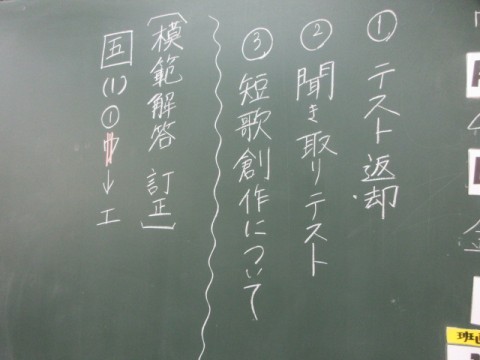 ① テスト返却
② 聞き取りテスト
③ 短歌創作について
〔模範解答 訂正〕
五 (1) ① ウ→エ